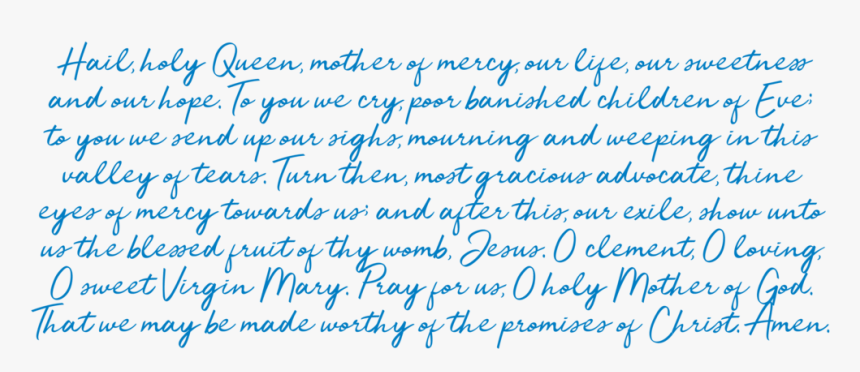 Hail, holy Queen, mother of mercy, our life, our sweetness
and our hope. To you we cry, poor banished children of Eve;
to you we send up our sighs, mourning and weeping in this
valley of tears. Turn then, most gracious advocate, thine
eyes of mercy towards us; and after this, our exile, show unto
us the blessed fruit of thy womb, Jesus. O clement, O loving,
O sweet Virgin Mary. Pray for us, O holy Mother of God.
That we may be made worthy of the promises of Christ. Amen.